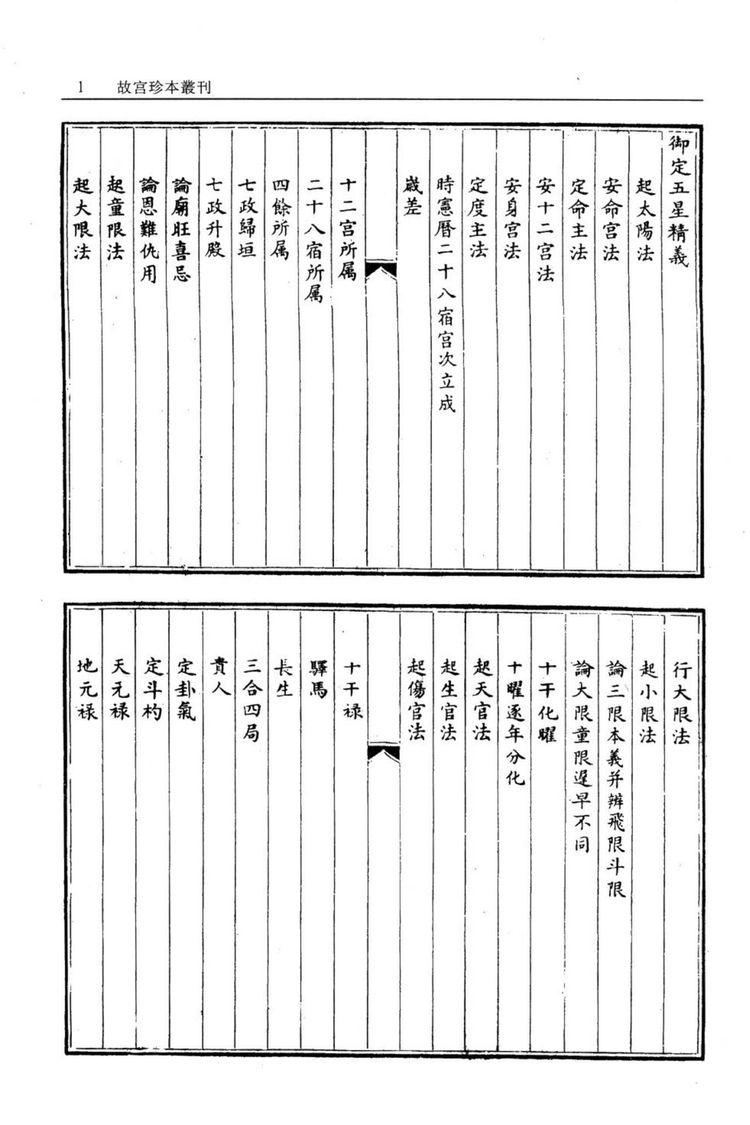 1 故宫珍本叢刊
御定五星精義
起太陽法
安命宫法
定命主法
安十二宫法
安身宫法
定度主法
時憲曆二十八宿宫次立成
歲差
十二宫所属
二十八宿所属
四餘所属
七政歸垣
七政升殿
論廟旺喜忌
論恩難仇用
起童限法
起大限法
行大限法
起小限法
論三限本義并辨飛限斗限
論大限童限遲早不同
十干化曜
十曜逐年分化
起天官法
起生官法
起傷官法
十干禄
驛馬
長生
三合四局
貴人
定卦氣
定斗杓
天元禄
地元禄